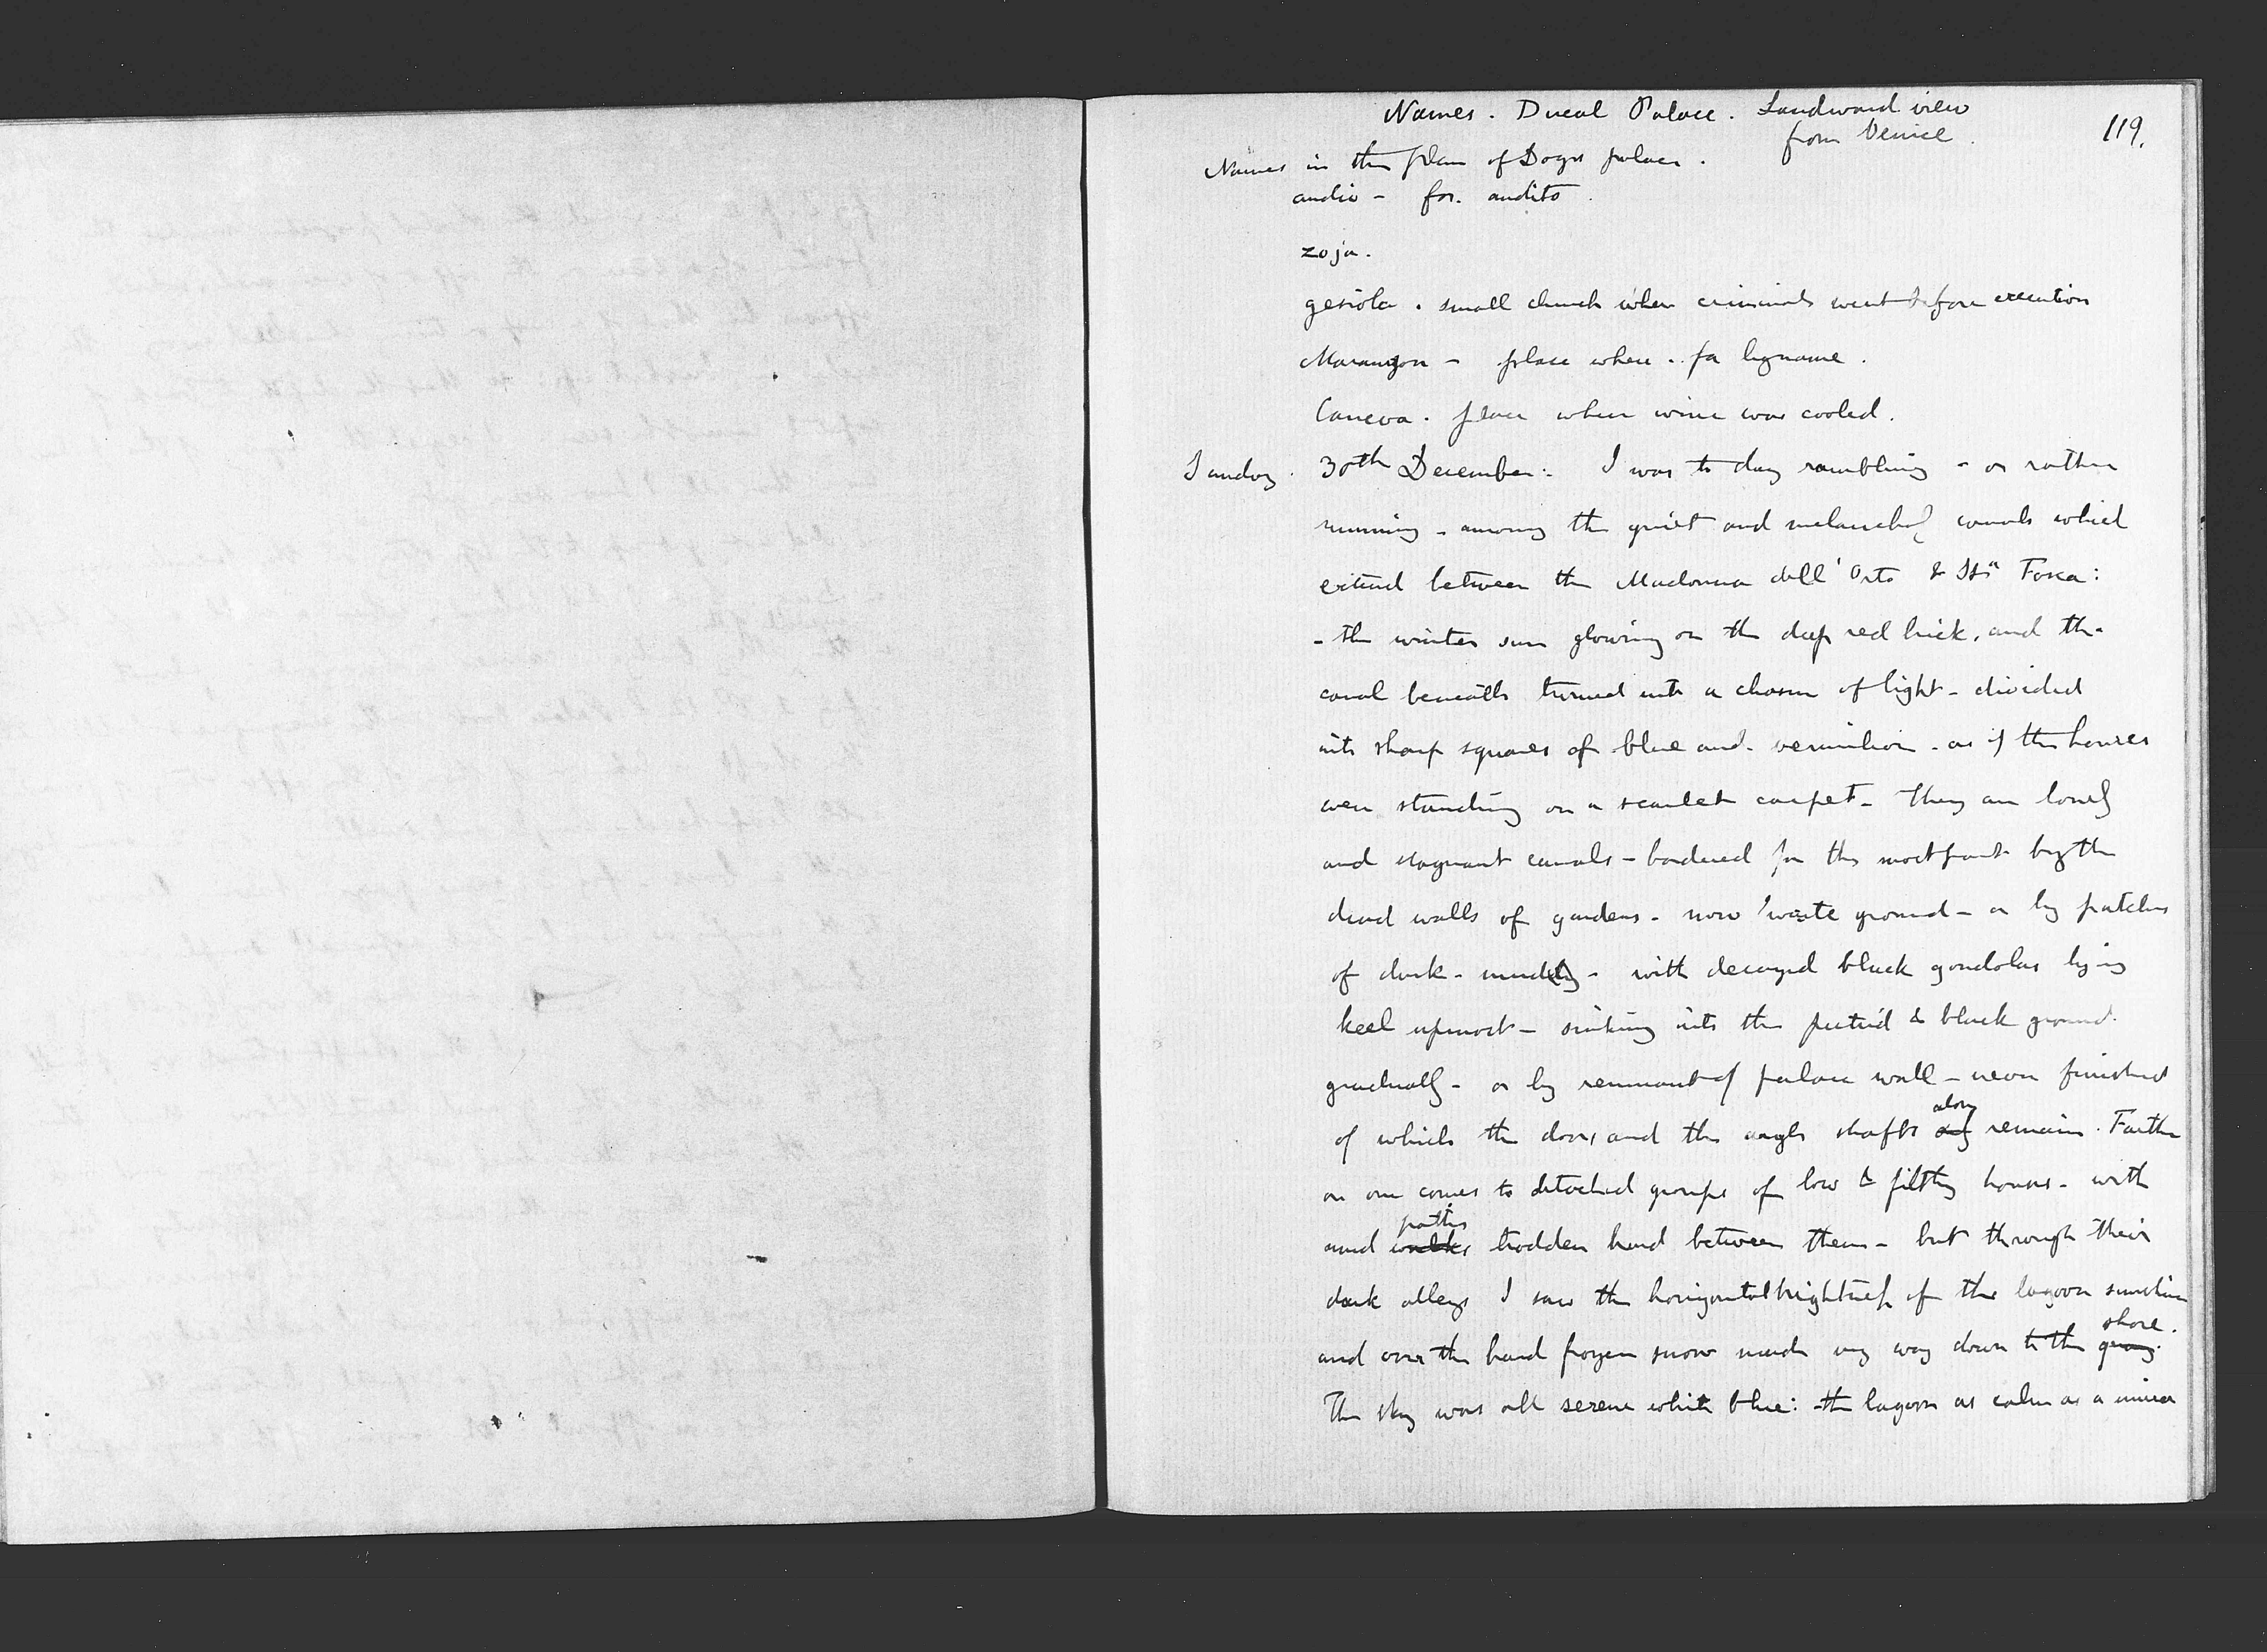 Names. Ducal Palace. Landward view
from Venice.
119.
Names in the plan of Doges palace.
andio - for. andito.
zoja.
gesiola. small church where criminals went before execution
Marangon - place where. fa legname.
Caneva. place where wine was cooled.
Sunday. 30th December: I was to day rambling - or rather
running - among the quiet and melancholy canals which
extend between the Madonna dell' Orto & Sta Fosca:
- the winter sun glowing on the deep red brick, and the
canal beneath turned into a chasm of light - divided
into sharp squares of blue and vermilion - as if the houses
were standing on a scarlet carpet - They are lonely
and stagnant canals - bordered for the most part by the
dead walls of gardens - now waste ground - or by patches
of dark - muddy - with decayed black gondolas lying
keel upmost - sinking into the putrid & black ground
gradually - or by remnant of palace wall - never finished
of which the doors and the angle shafts only alone remain. Farther
on one comes to detached groups of low & filthy houses - with
mud walks paths trodden hard between them - but through their
dark alleys I saw the horizontal brightness of the lagoon sunshine
and over the hard frozen snow made my way down to the quay. shore.
The sky was all serene white blue: the lagoon as calm as a mirror